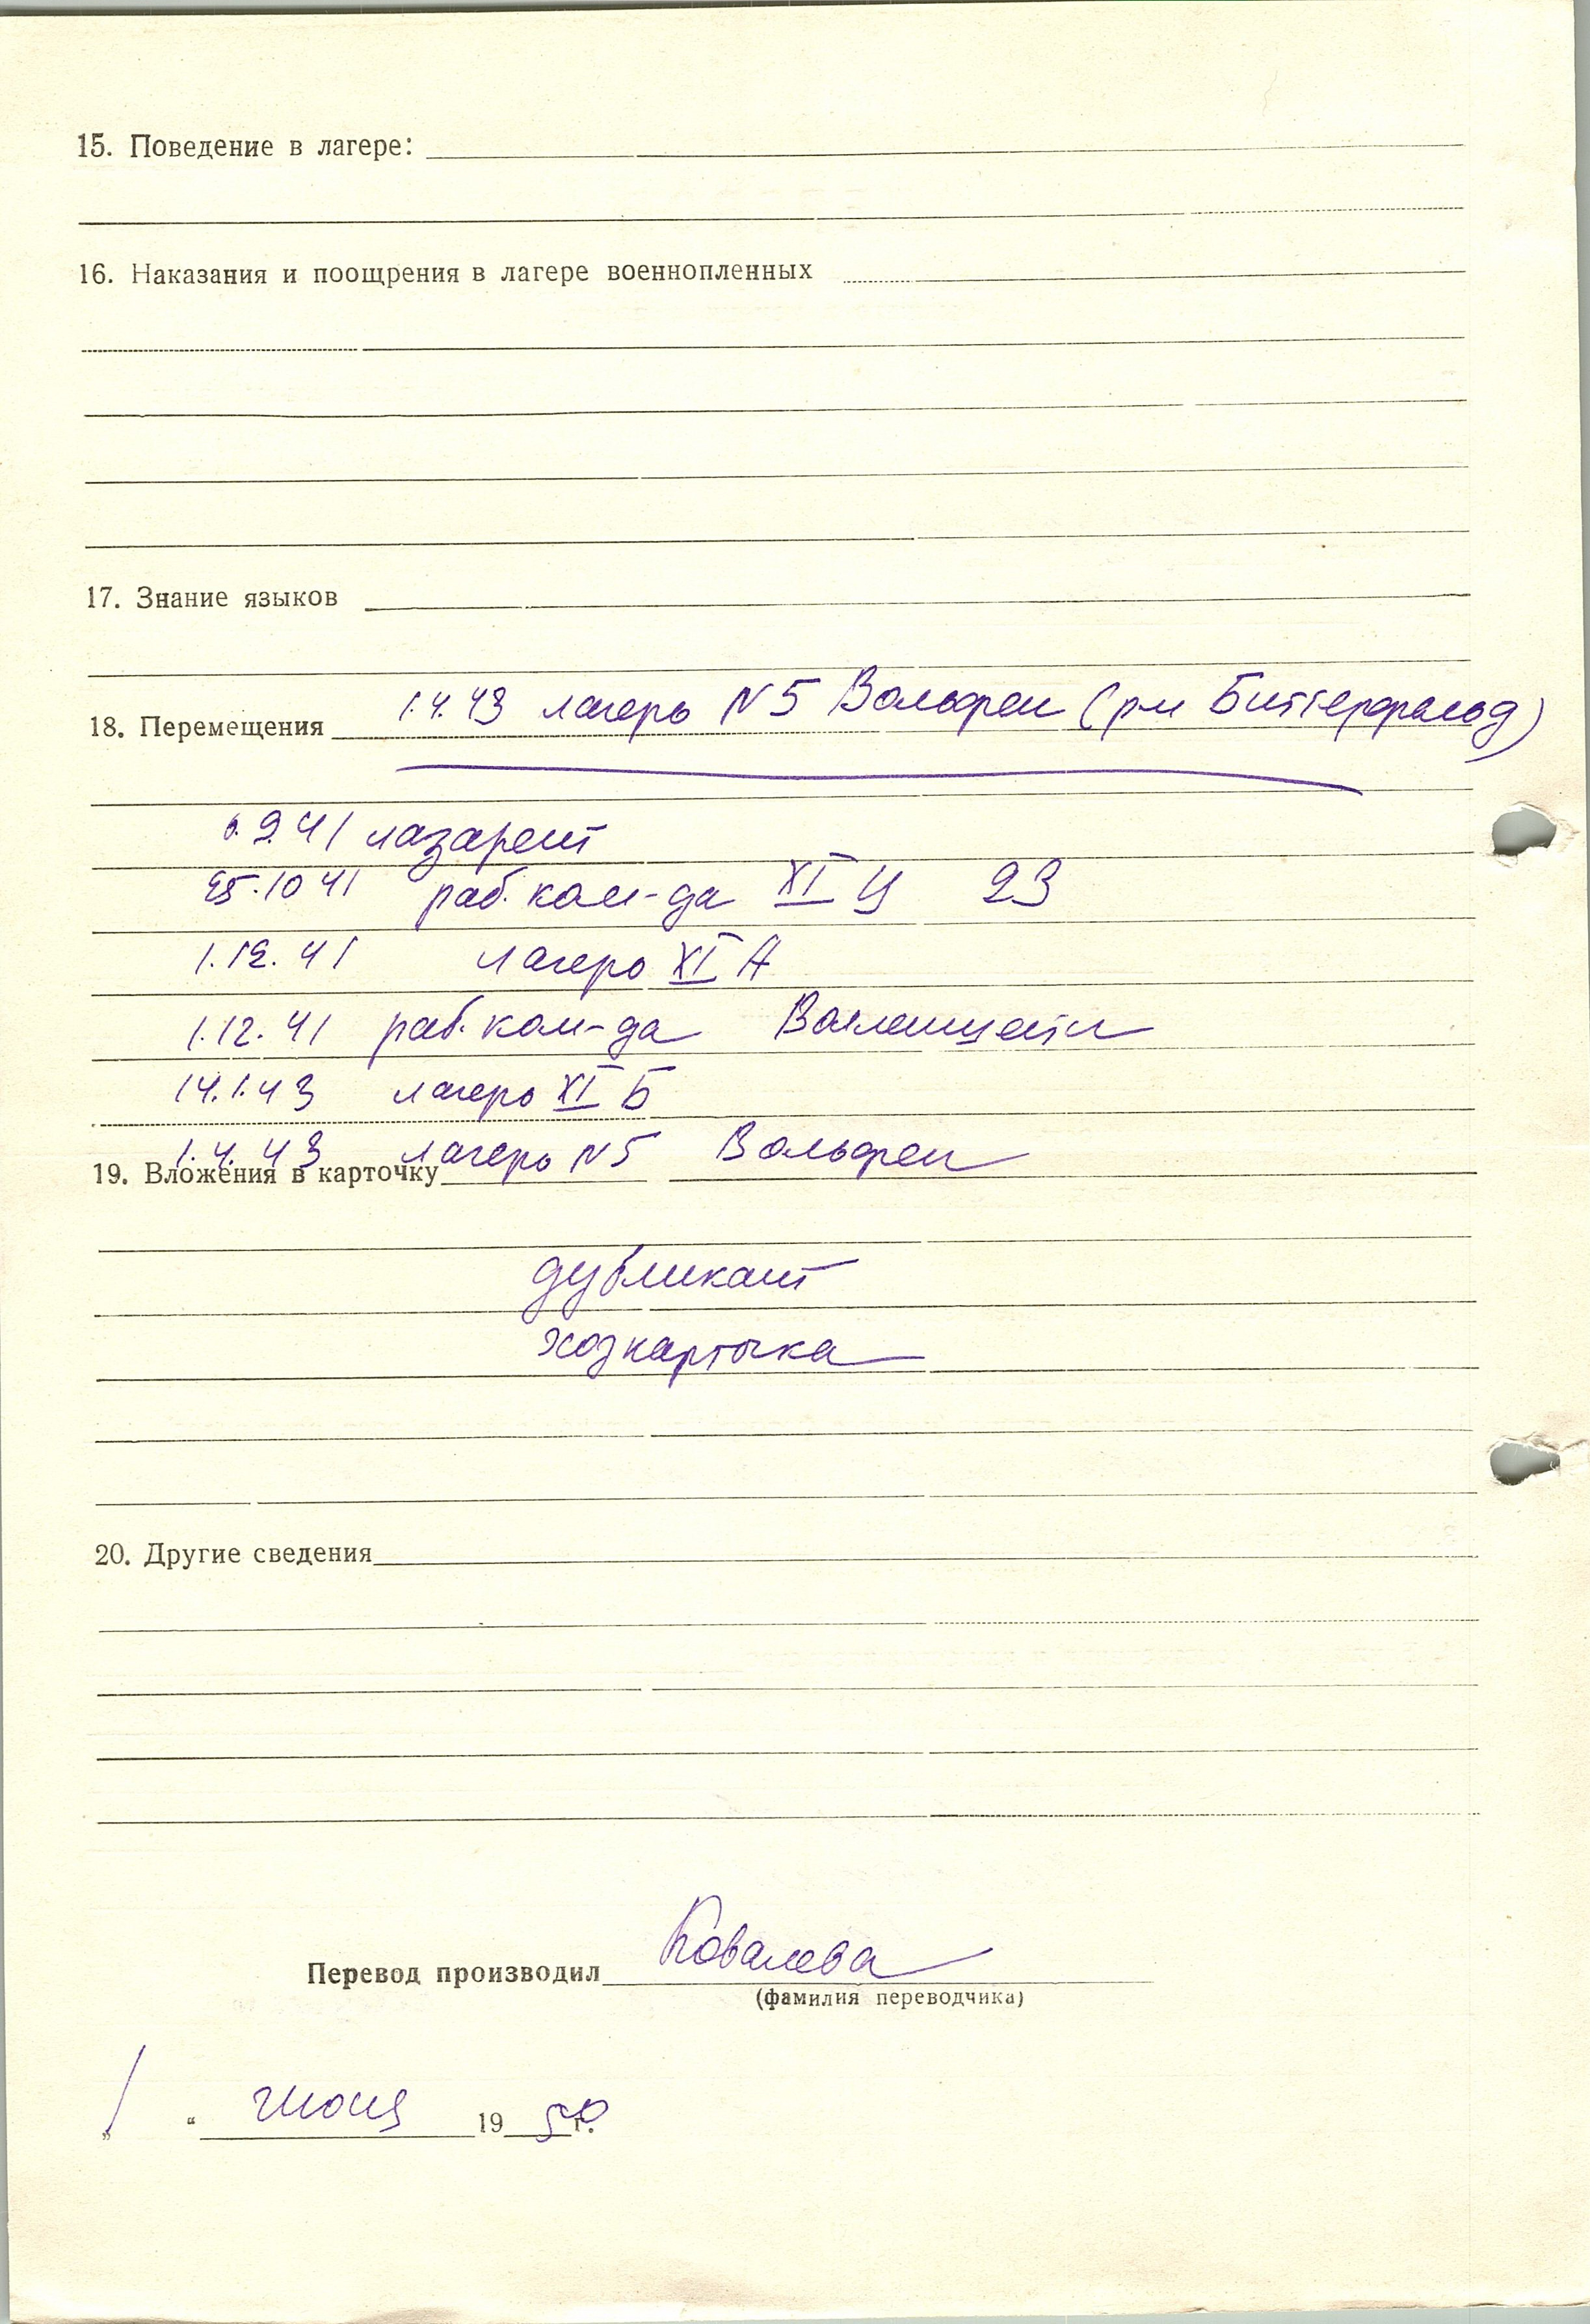 15. Поведение в лагере:
16. Наказания и поощрения в лагере военнопленных
17. Знание языков
18. Перемещения 1.4.43 лагерь N 5 Вольфен (р-н Биттерфельд)
6.9.41 лазарет
25.10 41 раб. ком-да XI Ц 23
1.12.41 лагерь XI А
1.12.41 раб. ком-да
14.1.43 лагерь XI Б
1.4.43 лагерь N 5 Вольфен
19. Вложения в карточку
дубликат
хозкарточка
20. Другие сведения
Перевод производил Ковалева
(фамилия переводчика)
„1“ июня 1950 г.